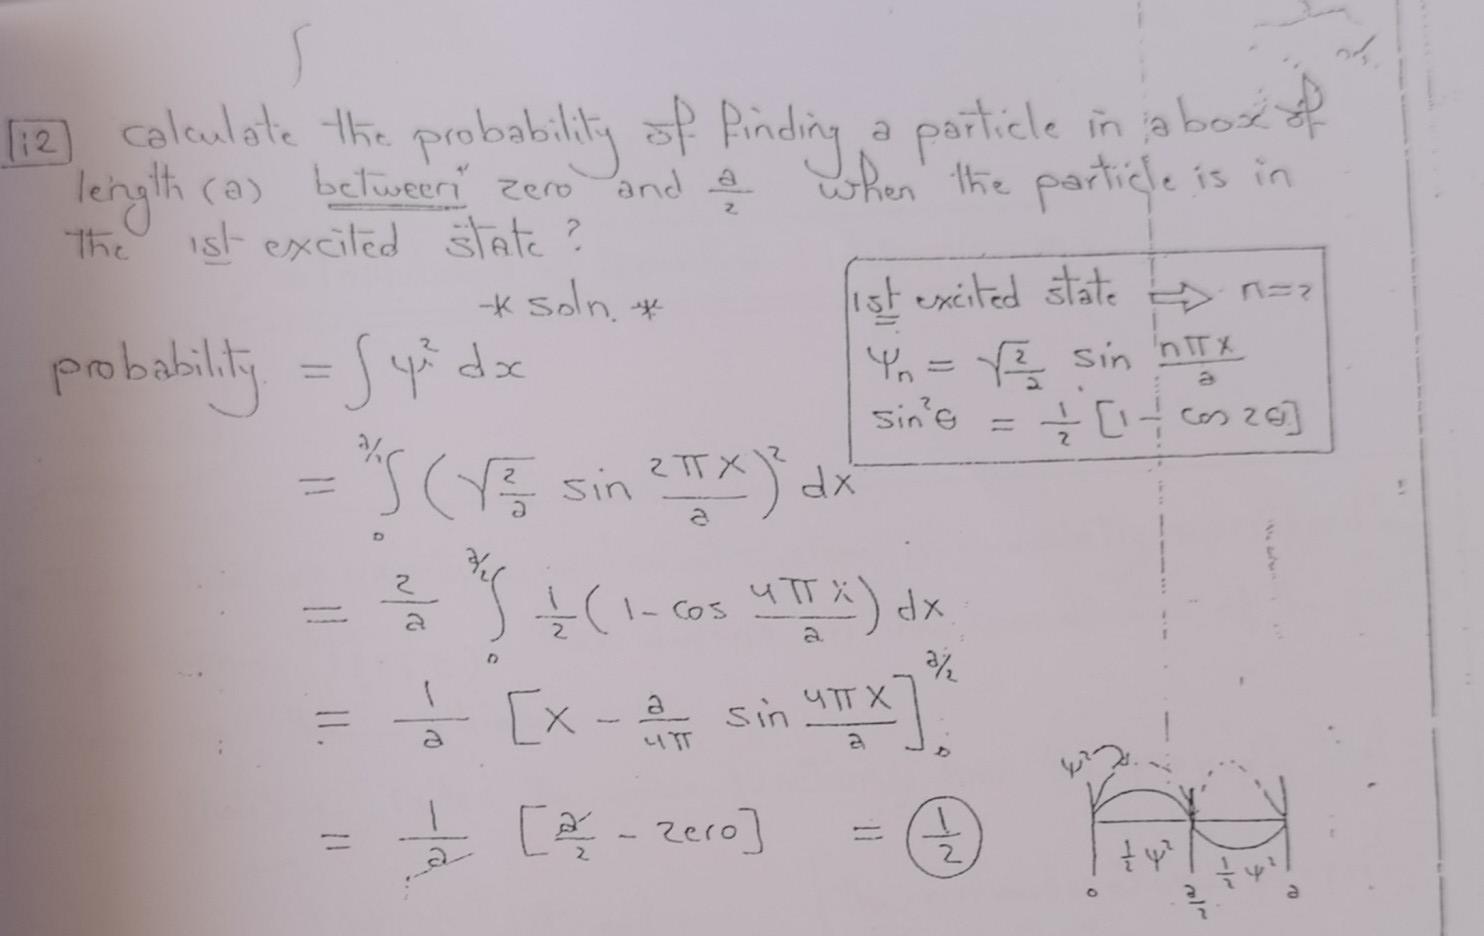 12 calculate the probability of finding a particle in a box of
length (a) between zero and a/2 when the particle is in
The 1st excited state?
* soln. *
1st excited state ⇒ n=2
ψn = √(2/a) sin nπx/a
sin²θ = 1/2 [1 - cos 2θ]
probability = ∫ψ² dx
= ∫₀^(a/2) (√(2/a) sin 2πx/a)² dx
= 2/a ∫₀^(a/2) 1/2 (1 - cos 4πx/a) dx
= 1/a [x - a/4π sin 4πx/a]₀^(a/2)
= 1/a [a/2 - zero] = 1/2
ψ²
1/2 ψ² 1/2 ψ²
0 a/2 a